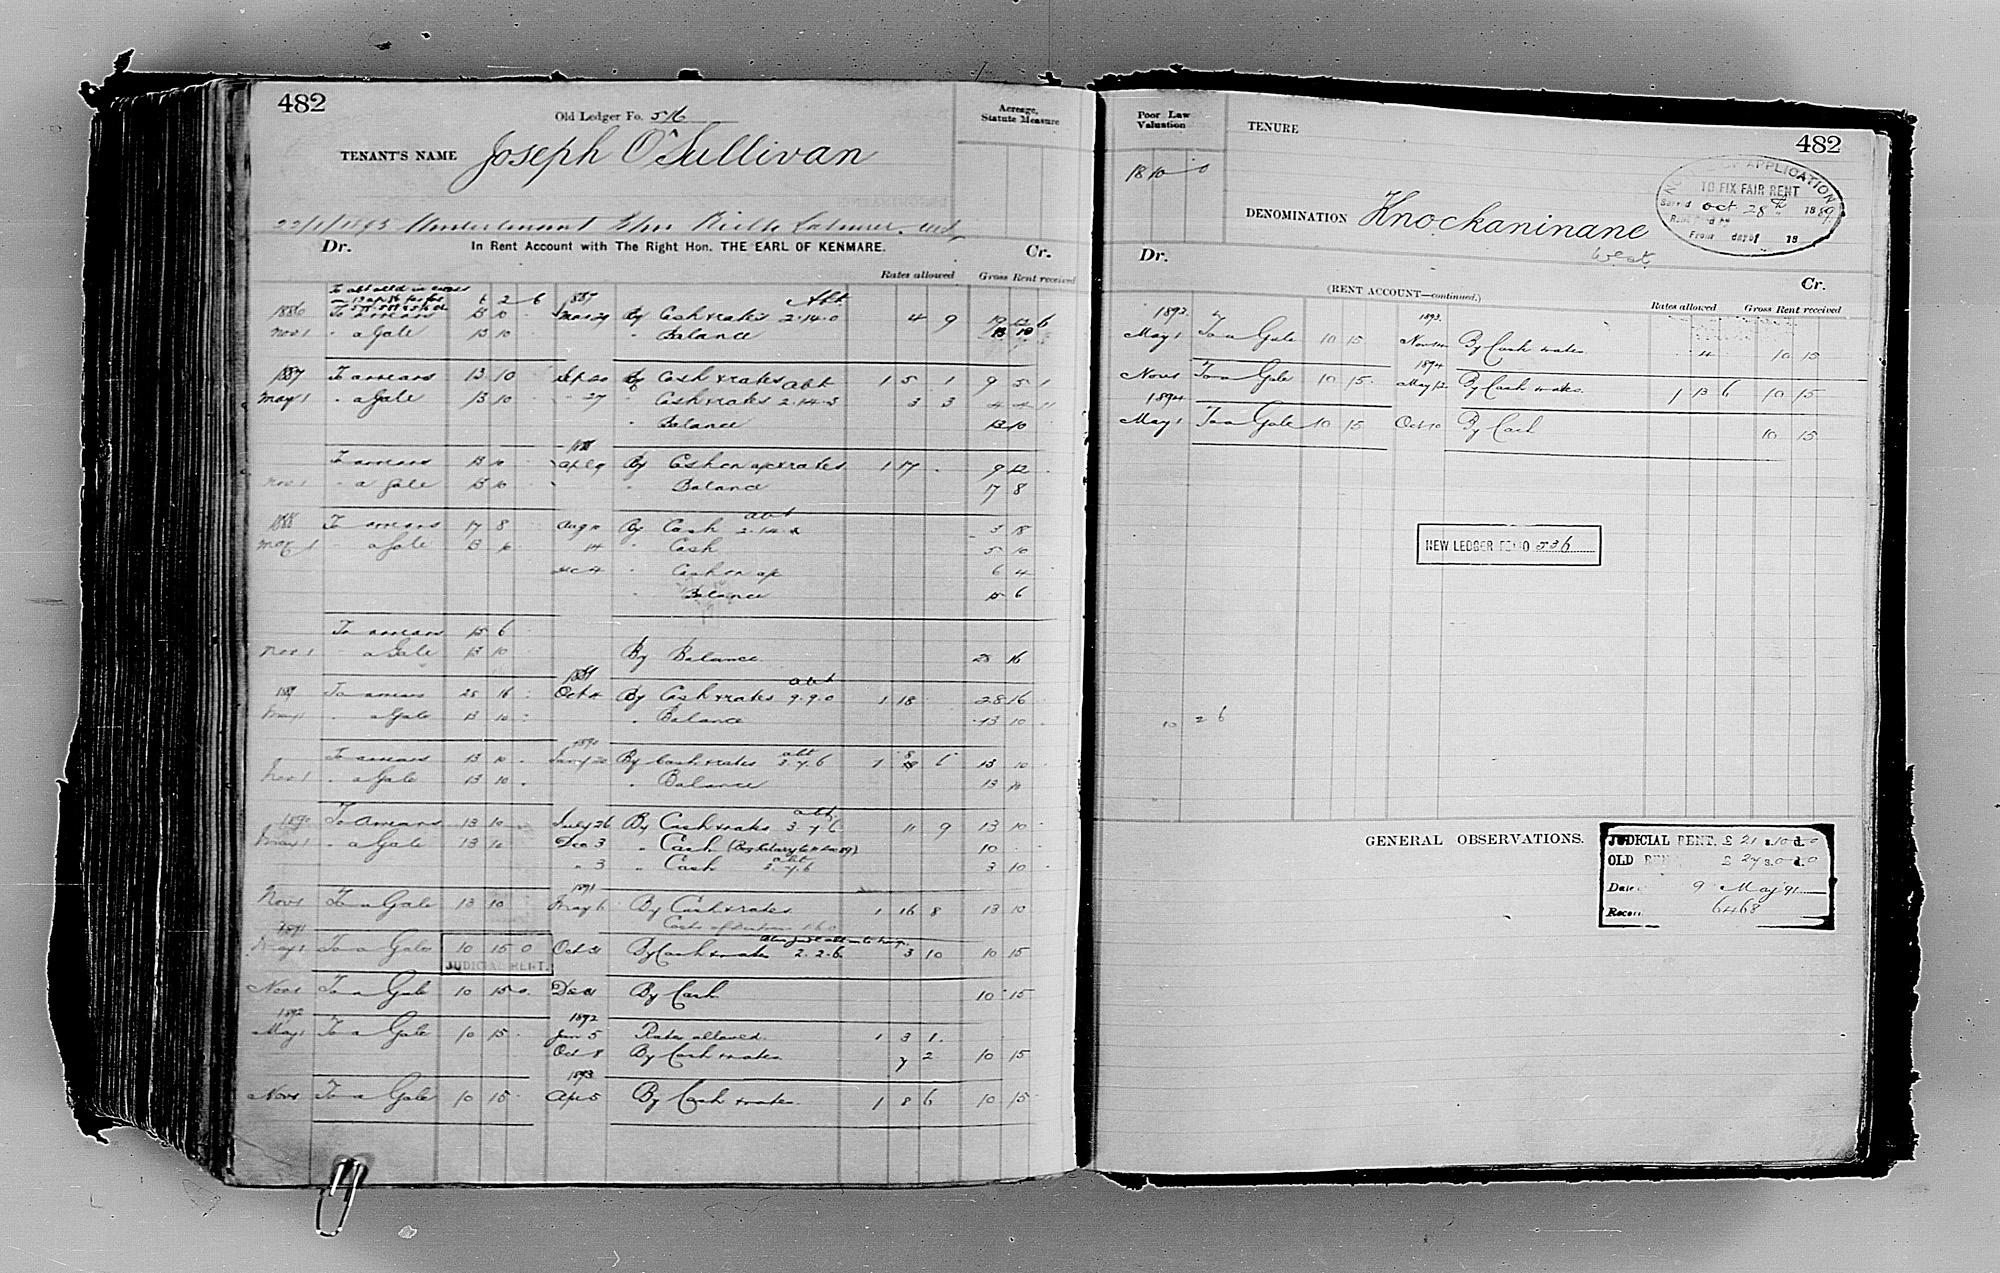 482
Old Ledger Fo. 516
Acreage, Statute Measure
TENANT'S NAME Joseph O'Sullivan
22/1/1893
Dr. In Rent Account with The Right Hon. THE EARL OF KENMARE. Cr.
Rates allowed Gross Rent received
6 2 6 1887 Abt
1886 13 10 Mar 29 By Cash & rates 2.14.0 4 9
Nov 1 " a Gale 13 10 " Balance
1887 To arrears 13 10 Sept 20 By Cash & rates abt 1 5 1 9 5 1
May 1 " a Gale 13 10 " 27 " Cash & rates 2.14.3 3 3 4 4 11
" Balance 13 10
1888
To arrears 13 10 Apl 9 By Cash on a/c & rates 1 17 9 12
Nov 1 " a Gale 13 10 " Balance 17 8
1888 To arrears 17 8 Aug By Cash abt 2.14.2 3 18
May 1 " a Gale 13 10 14 " Cash 5 10
Dec 4 " Cash on a/c 6 4
" Balance 15 6
To arrears 15 6
Nov 1 " a Gale 13 10 By Balance 28 16
1889
1889 To arrears 28 16 Oct By Cash & rates abt 9.9.0 1 18 28 16
May 1 " a Gale 13 10 " Balance 13 10
1890
To arrears 13 10 Jany 20 By Cash & rates abt 3.7.6 1 8 6 13 10
Nov 1 " a Gale 13 10 " Balance 13 10
1890 To Arrears 13 10 July 26 By Cash & rates abt 3.7.6 11 9 13 10
May 1 " a Gale 13 10 Dec 3 " Cash 10
" 3 " Cash abt 3.7.6 3 10
1891
Nov 1 To a Gale 13 10 May 6 By Cash & rates 1 16 8 13 10
1891
May 1 To a Gale 10 15 0 Oct 31 By Cash & rates 2.2.6 3 10 10 15
JUDICIAL RENT.
Nov 1 To a Gale 10 15 0 Dec 31 By Cash 10 15
1892 1892
May 1 To a Gale 10 15 Jan 5 Rates allowed 1 3 1
Oct 8 By Cash & rates 7 2 10 15
1893
Nov 1 To a Gale 10 15 Apl 5 By Cash & rates 1 8 6 10 15
Poor Law Valuation
TENURE
482
18 10 0
NOTICE OF APPLICATION
TO FIX FAIR RENT
Served Oct 28th 1889
From day of 18
DENOMINATION Knockaninane
West
Dr. Cr.
(RENT ACCOUNT—continued.)
Rates allowed Gross Rent received
1893 1893
May 1 To a Gale 10 15 Nov By Cash & rates 4 10 15
1894
Nov 1 To a Gale 10 15 May 12 By Cash & rates 1 13 6 10 15
1894
May 1 To a Gale 10 15 Oct 10 By Cash 10 15
NEW LEDGER FOLIO 536
10 2 6
GENERAL OBSERVATIONS.
JUDICIAL RENT. £21 s.10 d.0
OLD RENT £27 s.0 d.0
Date 9 May 91
Record 6468